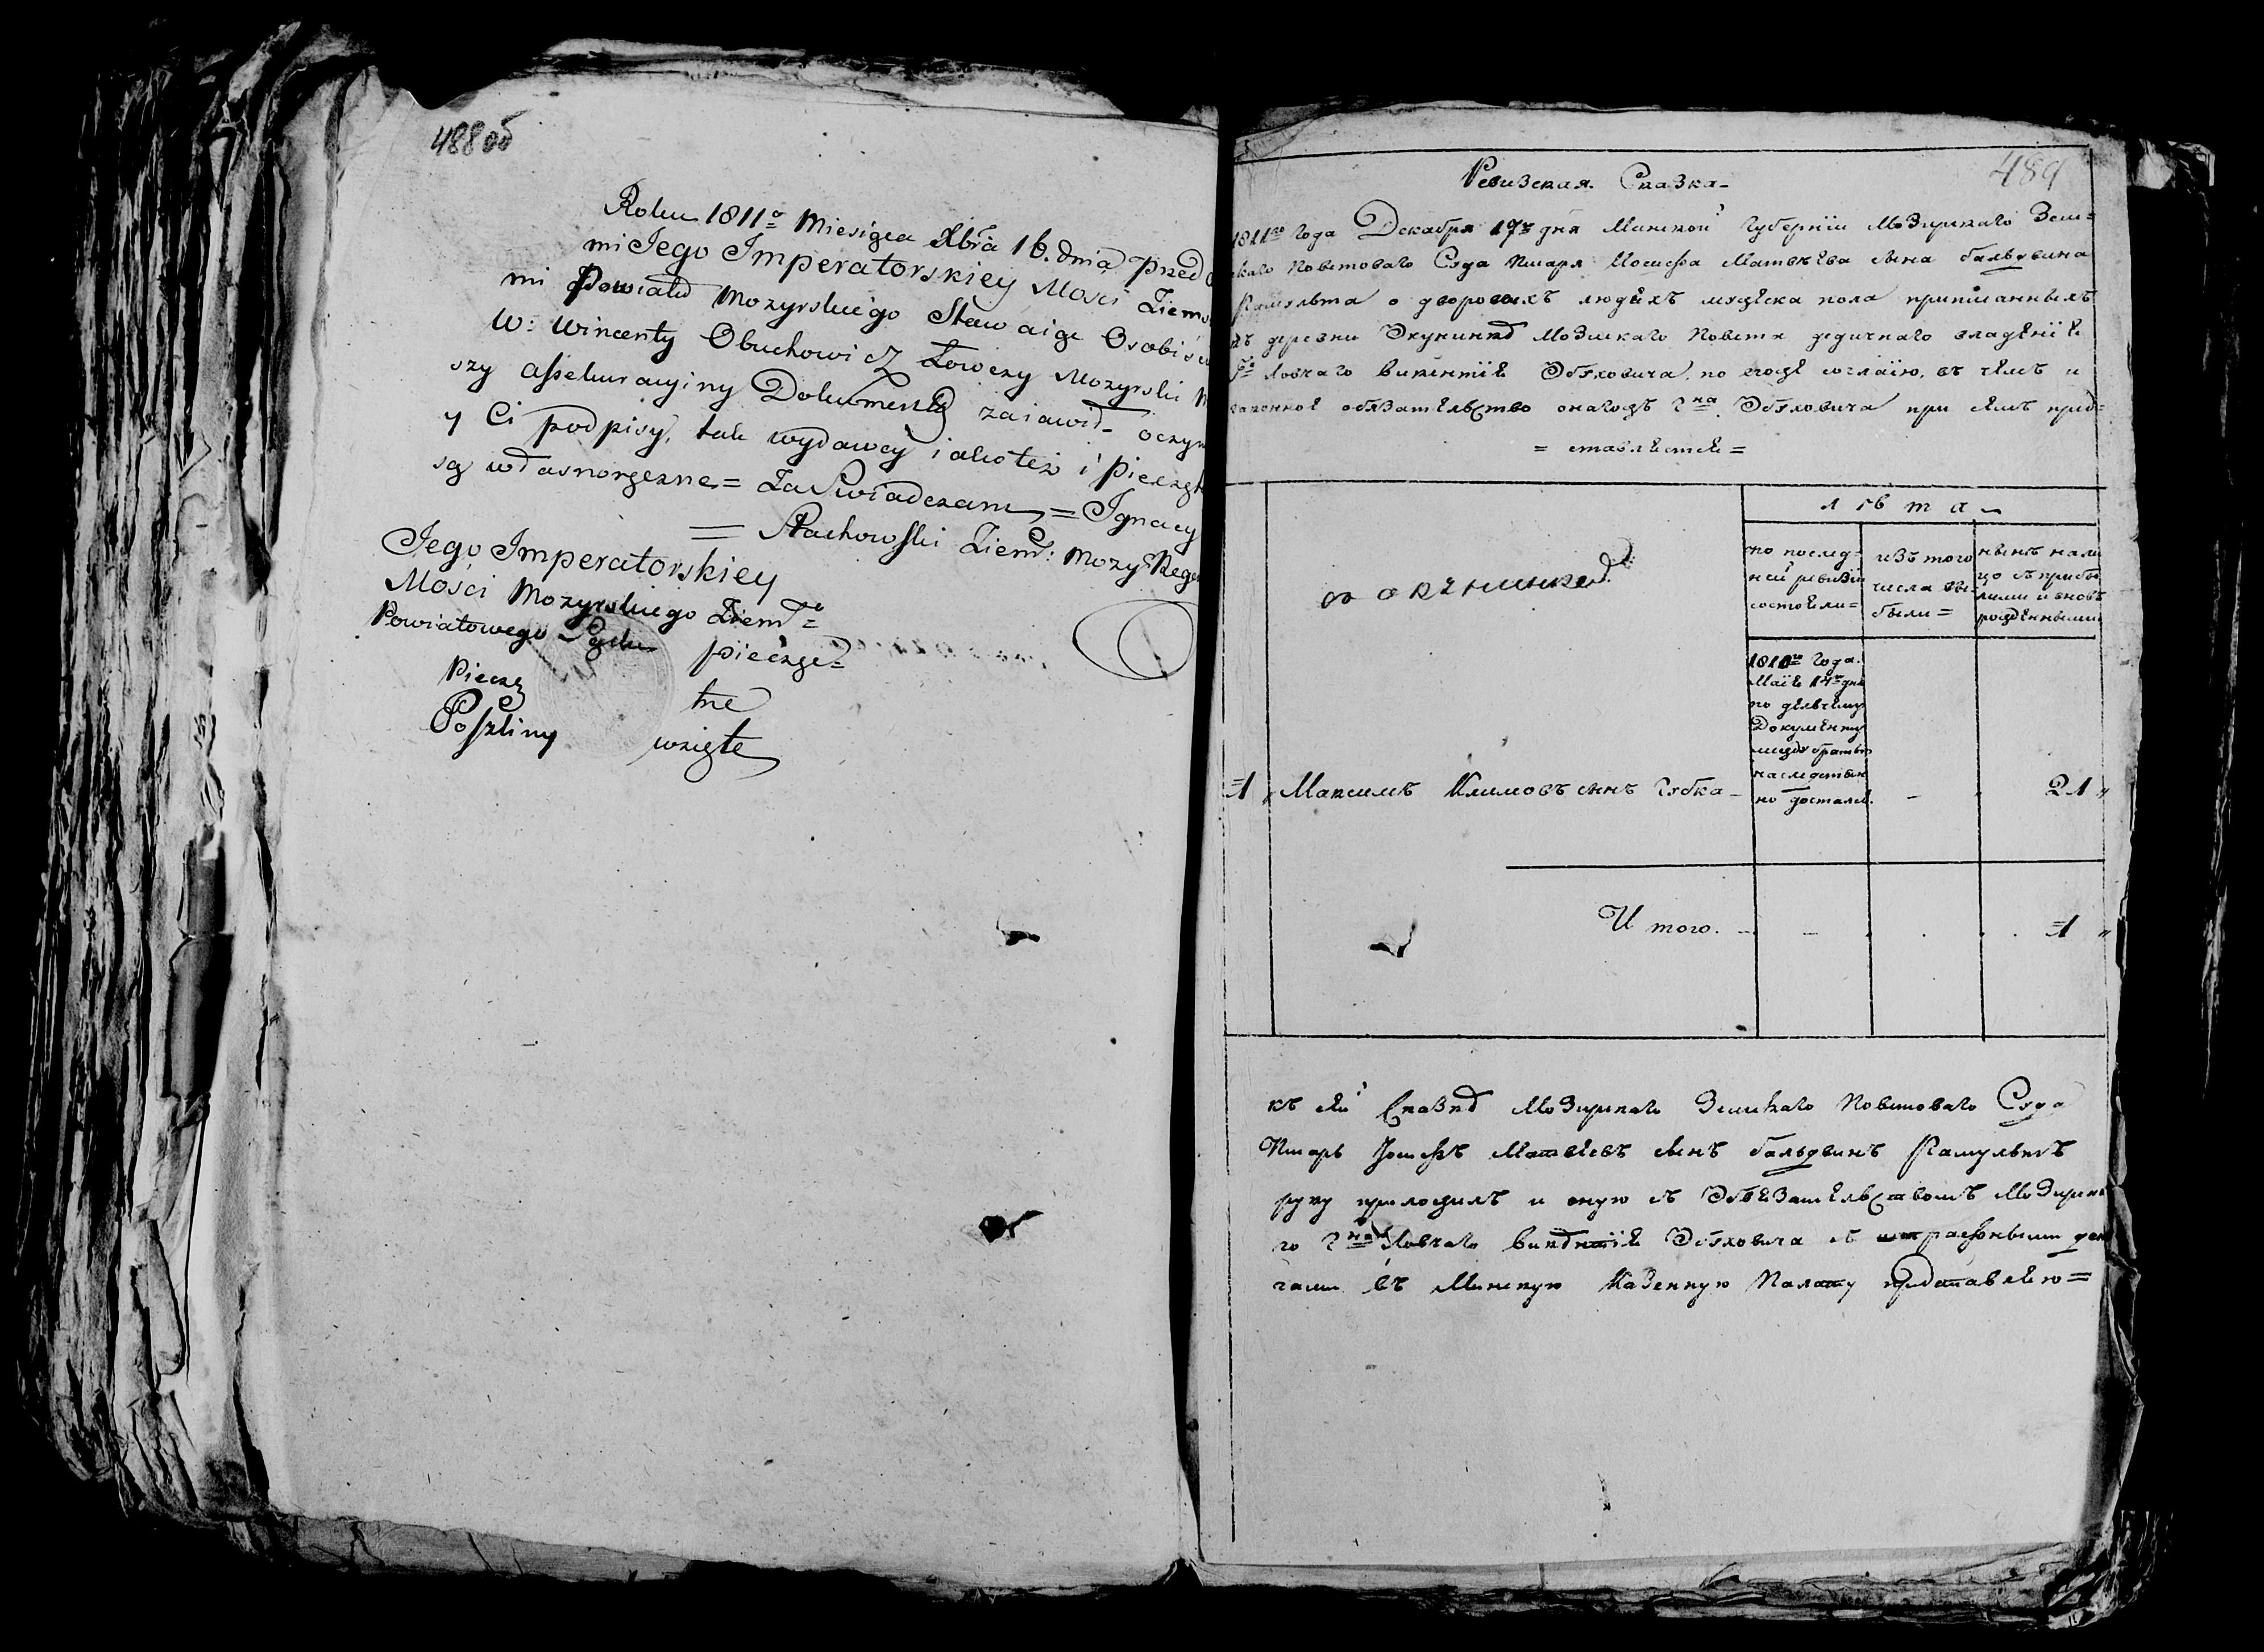 488об
Roku 1811º Miesiąca Xbra 16. dnia przed
mi Jego Imperatorskiey Mości Ziems
mi Powiatu Mozyrskiego Stawaiąc Osobiś
W: Wincenty Obuchowicz Łowczy Mozyrski
szy assekuracyiny Dokument zaiawił oczy
y Ci podpisy, tak wydawcy iako też i Pieczęt
są własnoręczne = Zaświadczam = Ignacy
= Stachowski Ziem: Mozy: Rege
Jego Imperatorskiey
Mości Mozyrskiego Ziem=
Powiatowego Sądu pieczę=
Piecz tne
Poszliny wzięte
489
Ревизская Сказка
1811го Года Декабря 17го дня Минской Губернїи Мозирскаго Зем=
скаго Поветоваго Суда Писаря Иосифа Матвѣева сына бальдвина
о дворовыхъ людяхъ мужеска пола приписанныхъ
деревни Мозискаго Повета дедичнаго владѣнїе
Ловчаго Викентїе Обуховича, по его согласїю, въ чемъ и
законное обязательство онагожъ Гна Обуховича при семъ пред=
= ставляется =
лѣта
по послед=
ней ревизїи
состояли=
изъ того
числа вы=
были=
нынѣ нали
цо съ прибы
лими и вновь
рожденными
1810го Года
Маїе 14го дня
по дельчему
Документу
между братьо
наследствен
но достался
1 Максимъ Климовъ сынъ Губка 21
Итого. 1
къ сей Сказке Мозирскаго Земскаго Поветоваго Суда
Писарь Иосифъ Матвѣевъ сынъ бальдвинъ
руку приложилъ и оную съ Обезательствомъ Мозирска
го Гна Ловчаго Викентїе Обуховича съ штрафовными ден
гами въ Минскую Казенную Палату представляю=